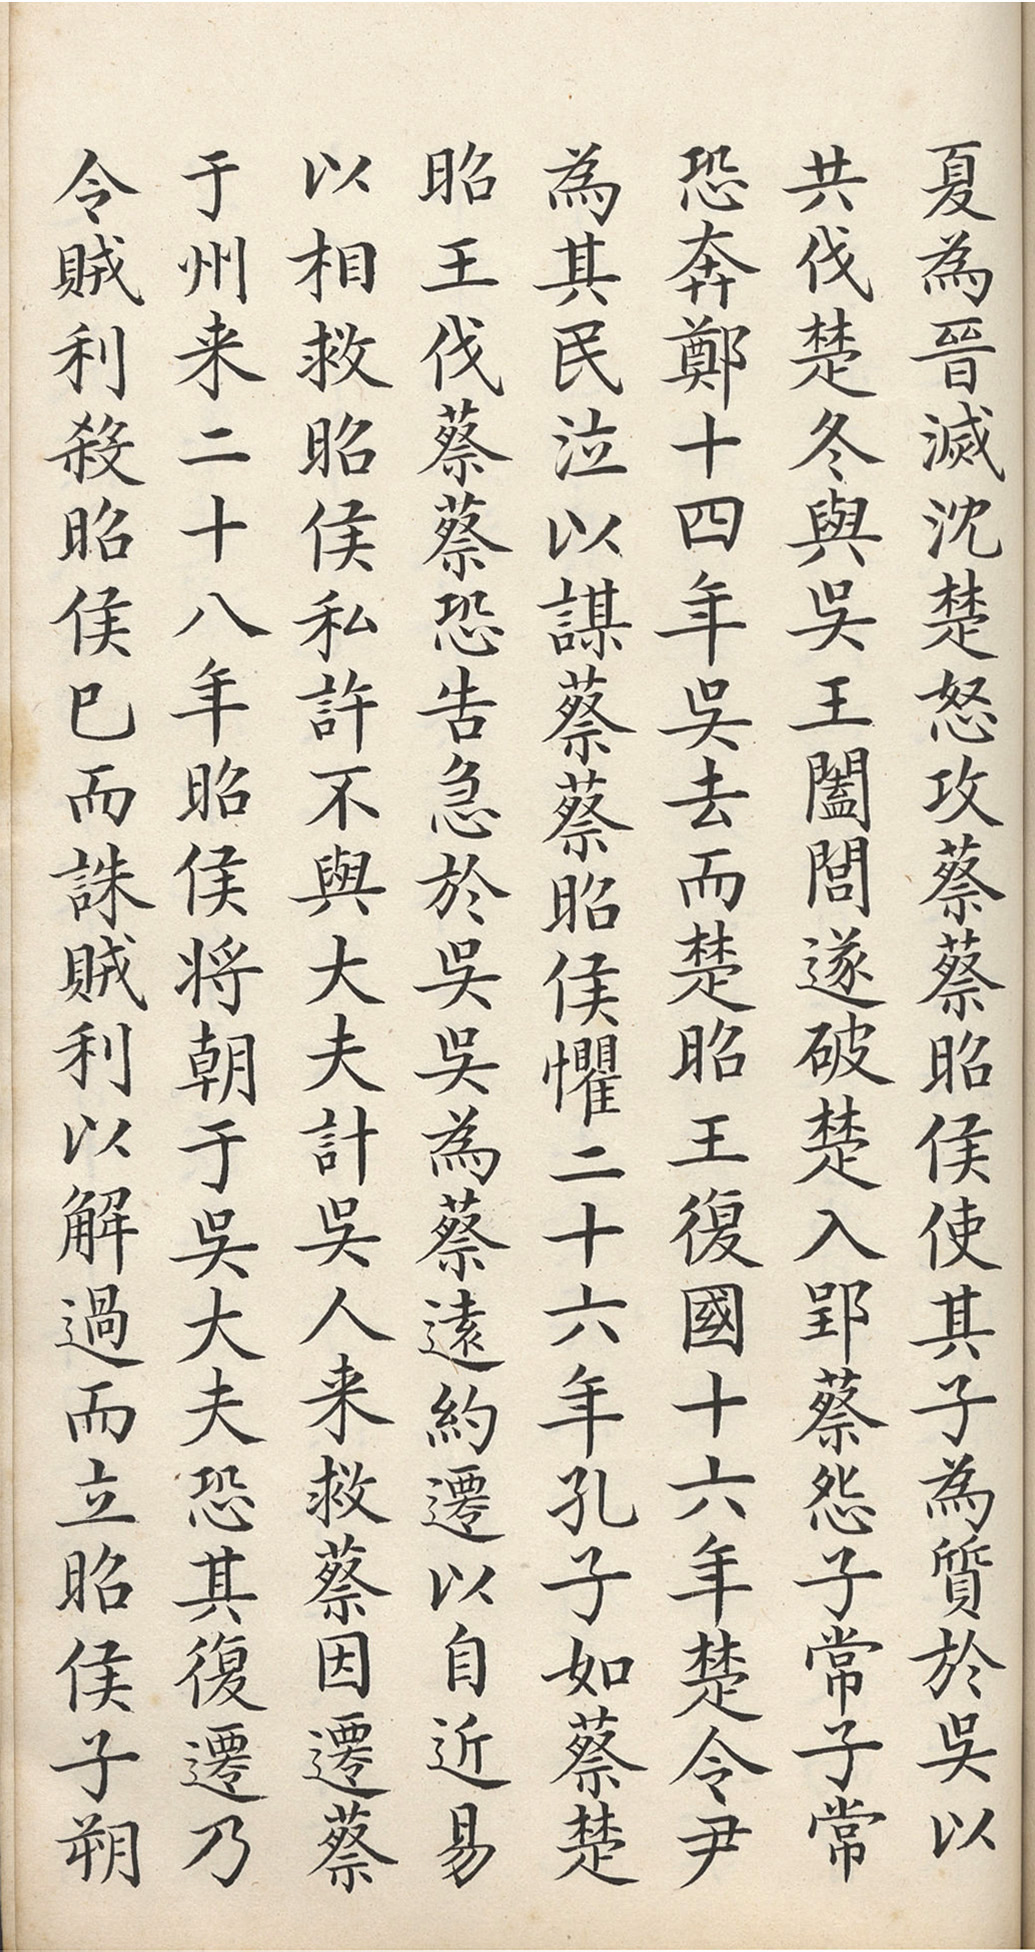 夏為晉滅沈楚怒攻蔡蔡昭侯使其子為質於吳以
共伐楚冬與吳王闔閭遂破楚入郢蔡怨子常子常
恐奔鄭十四年吳去而楚昭王復國十六年楚令尹
為其民泣以謀蔡蔡昭侯懼二十六年孔子如蔡楚
昭王伐蔡蔡恐告急於吳吳為蔡遠約遷以自近易
以相救昭侯私許不與大夫計吳人来救蔡因遷蔡
于州来二十八年昭侯将朝于吳大夫恐其復遷乃
令賊利殺昭侯已而誅賊利以解過而立昭侯子朔